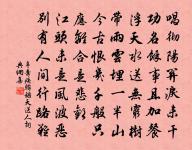 唱徹陽關淚未乾
功名餘事且加餐
浮天水送無窮樹
帶雨雲埋一半山
今古恨幾千般只
應離合是悲歡
江頭未是風波惡
別有人間行路難
辛棄疾鷓鴣天送人詞